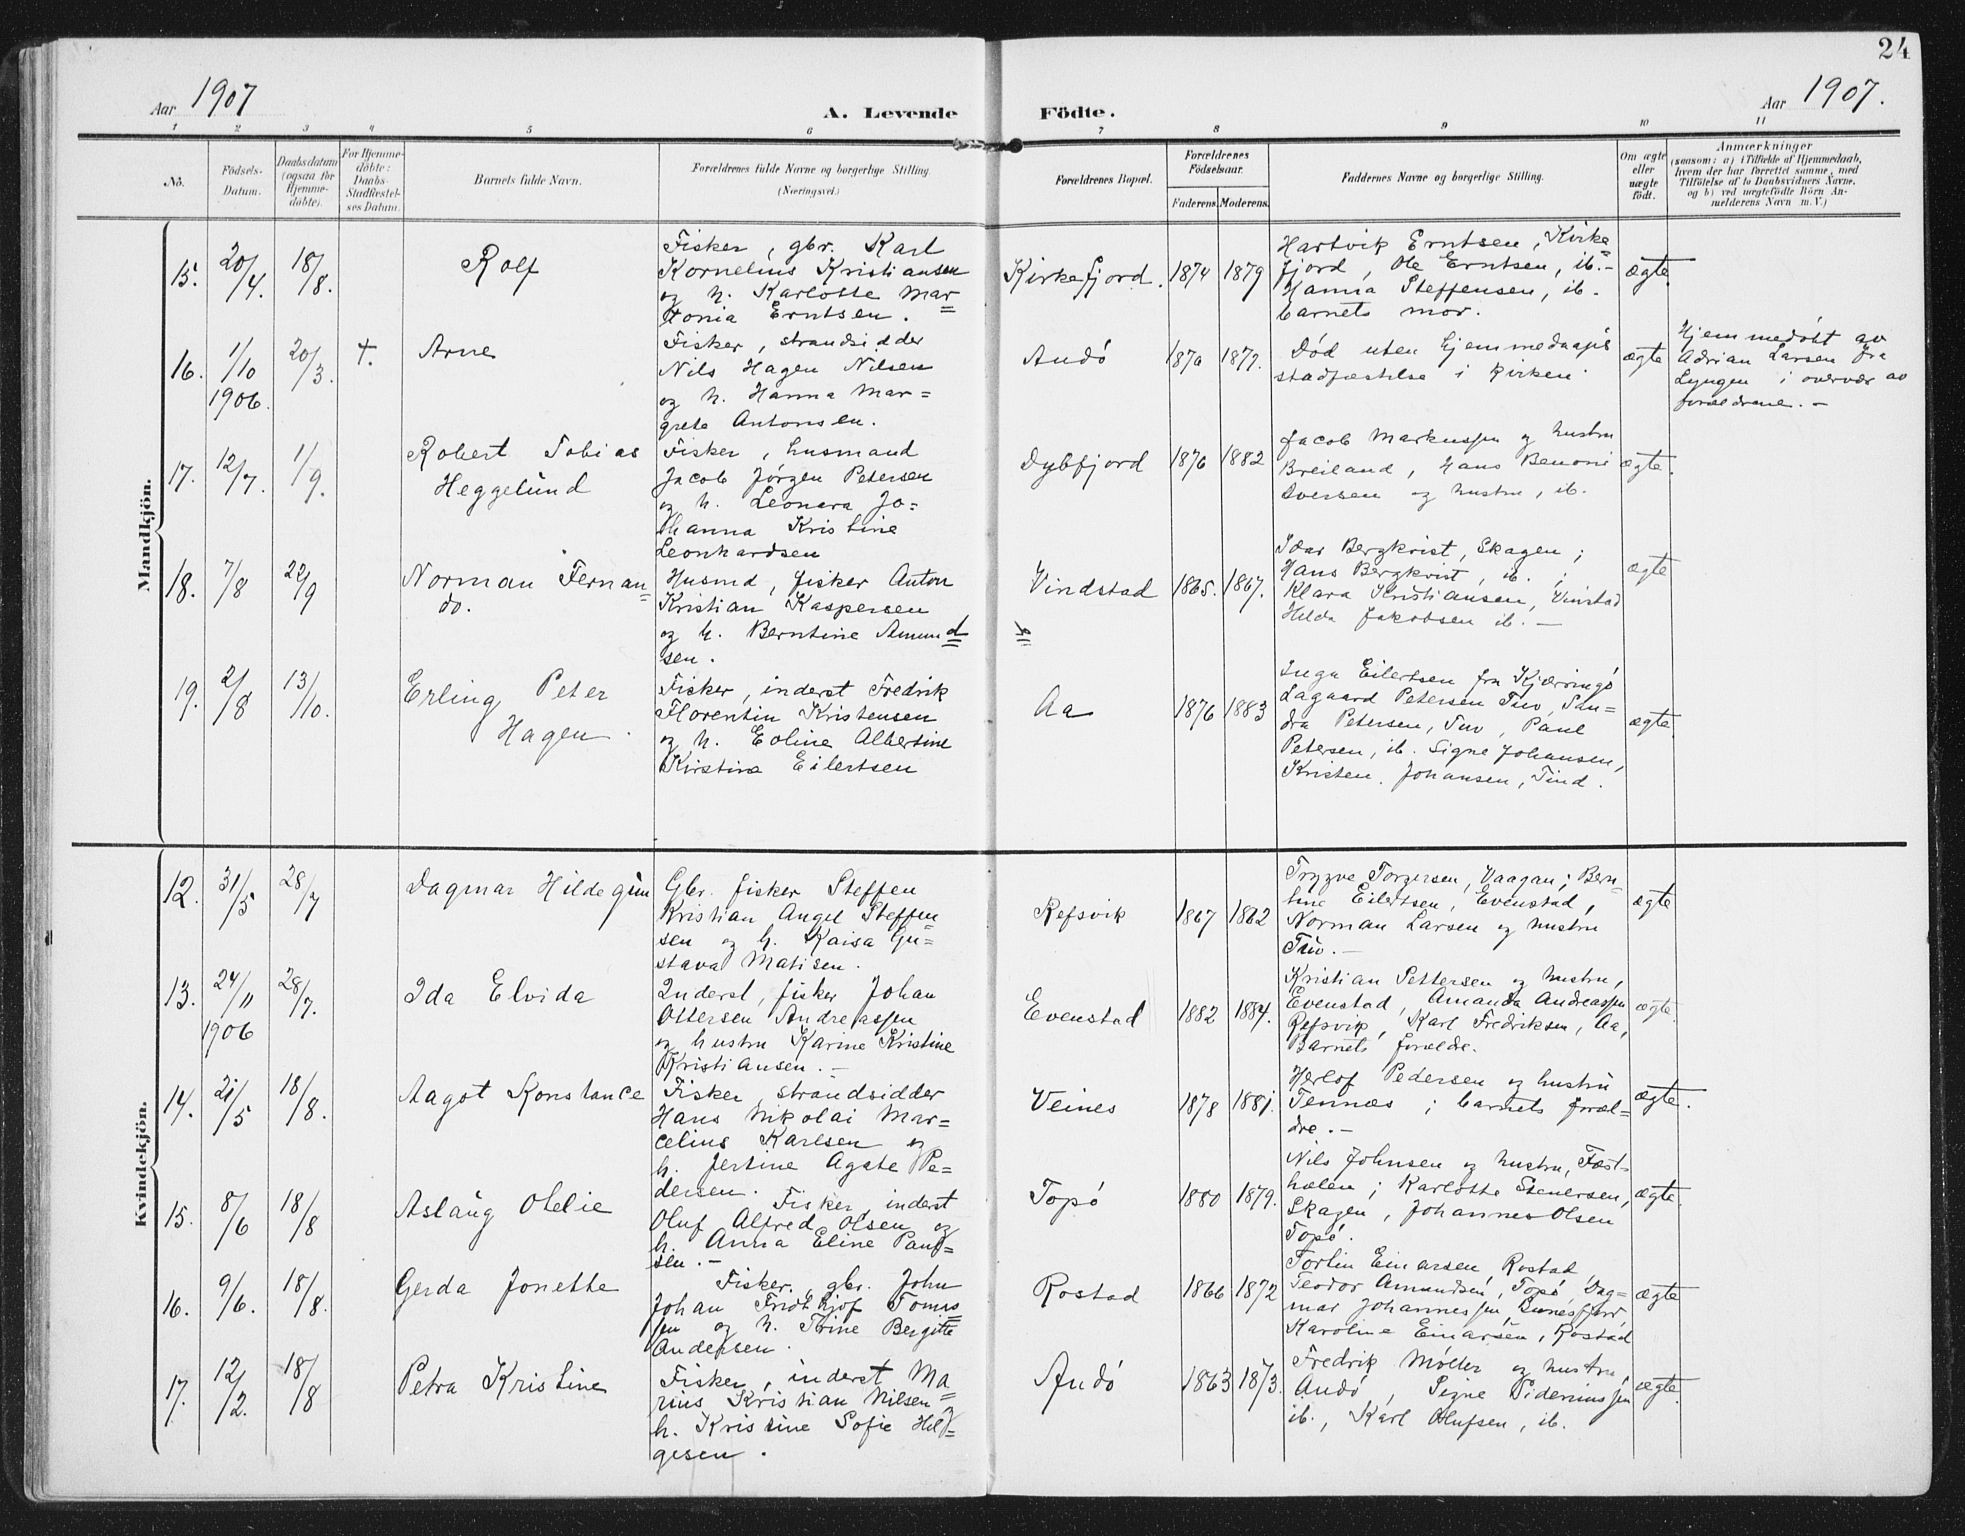 24
Aar 1907
A. Levende Födte.
Aar 1907.
1 2 3 4 5 6 7 8 9 10 11
No.
Födsels-
Datum.
Daabsdatum
(ogsaa for
Hjemme-
döbte).
For Hjemme-
döbte:
Daabs-
Stadfæstel-
ses Datum.
Barnets fulde Navn.
Forældrenes fulde Navne og borgerlige Stilling
(Næringsvei.)
Forældrenes Bopæl.
Forældrenes
Födselsaar.
Faderens. Moderens.
Faddernes Navne og borgerlige Stilling.
Om ægte
eller
uægte
födt.
Anmærkninger
(saasom: a) i Tilfælde af Hjemmedaab,
hvem der har forrettet samme, med
Tilföielse af to Daabsvidners Navne,
og b) ved uægtefödte Börn An-
melderens Navn m. V.)
Mandkjön.
15. 20/4. 18/8.
Rolf
Fisker, gbr. Karl
Kornelius Kristiansen
og h. Karlotte Mar=
tonia Erntsen.
Kirkefjord. 1874 1879
Hartvik Erntsen, Kirke=
fjord, Ole Erntsen, ib.-
Hanna Steffensen, ib.
barnets mor.
ægte
16. 1/10 1906. 20/3. +.
Arne
Fisker, strandsidder
Nils Hagen Nilsen
og h. Hanna Mar=
grete Antonsen.
Andö 1870 1877.
Död uten hjemmedaaps
stadfæstelse i kirken.
ægte
Hjemmedöbt av
Adrian Larsen fra
Lyngen i overvær av
forældrene. -
17. 12/7. 1/9.
Robert Tobias
Heggelund
Fisker, husmand
Jacob Jørgen Petersen
og h. Leonara Jo=
hanna Kristine
Leonhardsen
Dybfjord 1876 1882
Jacob Markussen og hustru
Breiland, Hans Benoni
Iversen og hustru, ib.
ægte.
18. 7/8 22/9
Norman Fernan=
do.
Husmd, fisker Anton
Kristian Kaspersen
og h. Berntine Amund=
sen.
Vindstad 1865. 1867.
Ivar Bergkvist, Skagen;
Hans Bergkvist, ib.;
Klara Kristiansen, Vinstad
Hilda Jakobsen ib. -
ægte
19. 2/8 13/10.
Erling Peter
Hagen.
Fisker, inderst Fredrik
Florentin Kristensen
og h. Eoline Albertine
Kirstine Eilertsen
Aa 1876 1883
Inga Eilertsen fra Kjærringö
Lagaard Petersen Tuv, San=
dra Petersen, Tuv, Paul
Petersen, ib. Signe Johansen,
Kristen. Johansen, Tind.
ægte
Kvindekjön.
12. 31/5 28/7
Dagmar Hildegun
Gbr. fisker Steffen
Kristian Angel Steffen=
sen og h. Kaisa Gu=
stava Matisen.
Refsvik 1867 1882
Trygve Torgersen, Vaagan; Bern=
tine Eilertsen, Evenstad,
Norman Larsen og hustru
Tuv. -
ægte
13. 24/11 1906 28/7.
Ida Elvida
Inderst, fisker Johan
Ottersen Andreassen
og hustru Karine Kristine
Kristiansen. -
Evenstad 1882 1884.
Kristian Pettersen og hustru,
Evenstad, Amanda Andreassen
Refsvik, Karl Fredriksen, Aa,
Barnets forældre.
ægte.
14. 21/5 18/8.
Aagot Konstance
Fisker, strandsidder
Hans Nikolai Mar=
celius Karlsen og
h. Jertine Agate Pe=
dersen.
Veines 1878 1881.
Herlof Pedersen og hustru
Tennæs; barnets foræl=
dre. -
ægte.
15. 8/6 18/8
Aslaug Otelie
Fisker, inderst
Oluf Alfred Olsen og
h. Anna Eline Paul=
sen. -
Topö 1880 1879.
Nils Johnsen og hustru, Fæst=
hælen; Karlotte Stenersen,
Skagen, Johannes Olsen
Topö.
ægte.
16. 9/6. 18/8.
Gerda Jonette
Fisker, gbr. John
Johan Fridtkjof Tomas=
sen og h. Trine Bergitte
Andersen.
Rostad 1866 1872
Torlin Einarsen Rostad,
Teodor Amundsen, Topö, Dag=
mar Johannessen, Bunesfjord,
Karoline Einarsen, Rostad
ægte
17. 12/2. 18/8
Petra Kristine
Fisker, inderst Ma=
rius Kristian Nilsen og
h. Kristine Sofie Hel=
gesen.
Andö 1863 1873.
Fredrik Møller og hustru,
Andö, Signe Sideriussen
ib., Karl Olufsen, ib.
ægte.